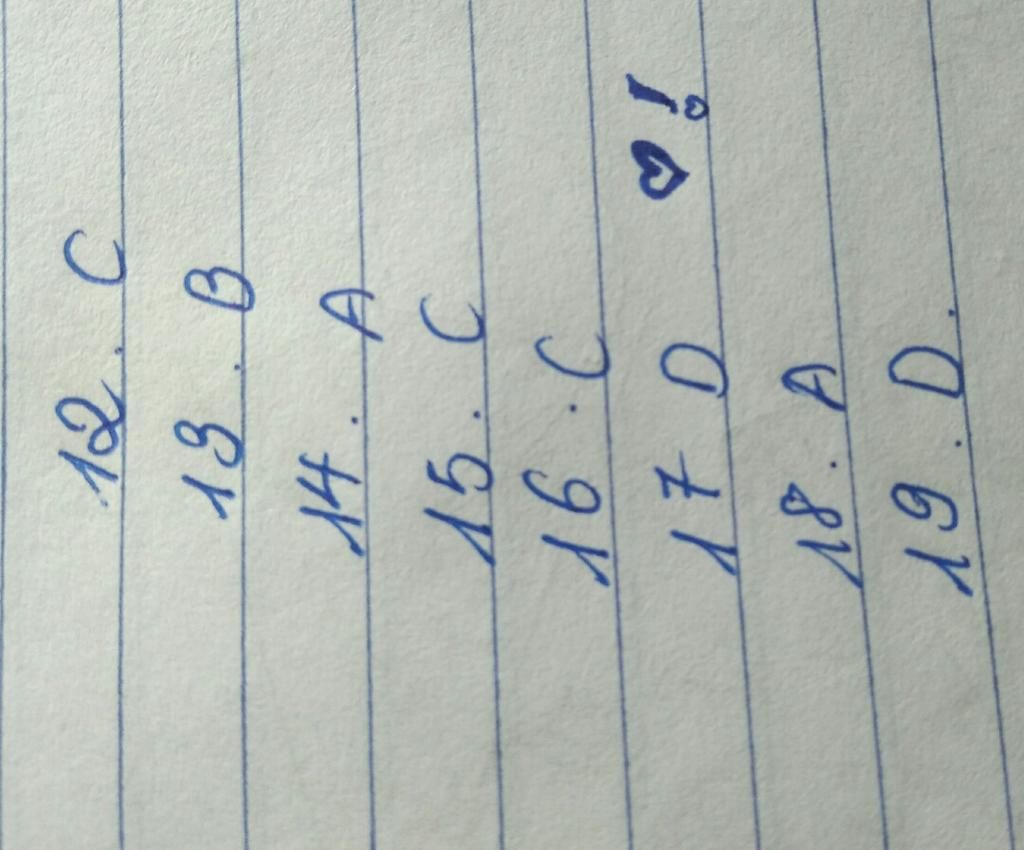 12. C
13. B
14. A
15. C
16. C
17 D ♥!
18. A
19. D.